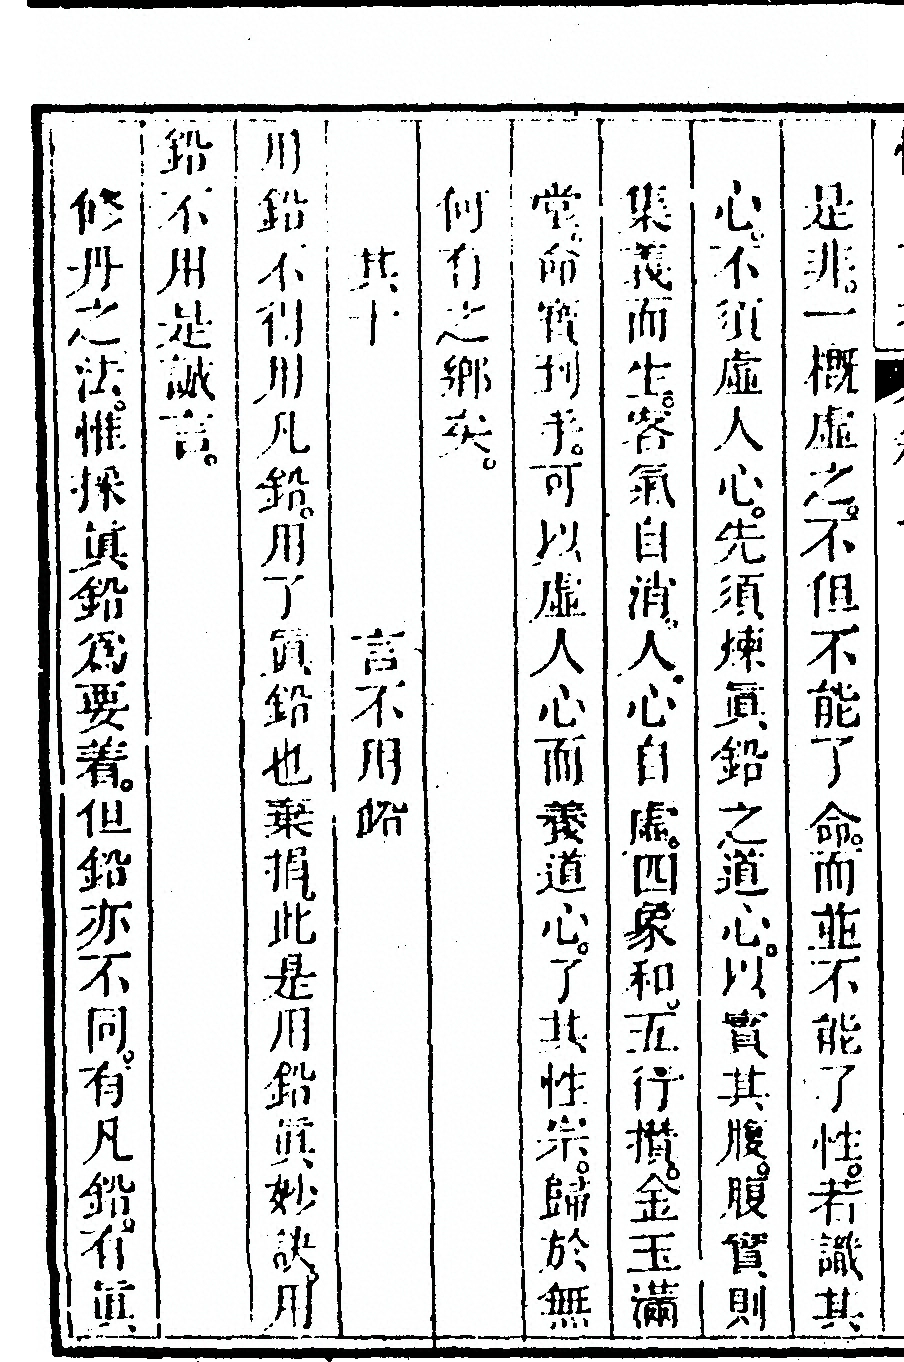 是非。一概虛之。不但不能了命。而並不能了性。若識其
心。不須虛人心。先須煉眞鉛之道心。以實其腹。腹實則
集義而生。客氣自消。人心自虛。四象和。五行攢。金玉滿
堂。命寶到手。可以虛人心而養道心。了其性宗。歸於無
何有之鄉矣。
其十 言不用鉛
用鉛不得用凡鉛。用了眞鉛也棄捐。此是用鉛眞妙訣。用
鉛不用是誠言。
修丹之法。惟採眞鉛爲要着。但鉛亦不同。有凡鉛。有眞